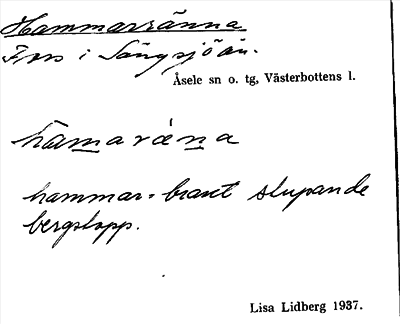 Hammarränna
Fors i Långsjöån.
Åsele sn o. tg, Västerbottens l.
hamaräna
hammar = brant stupande
bergstopp.
Lisa Lidberg 1937.